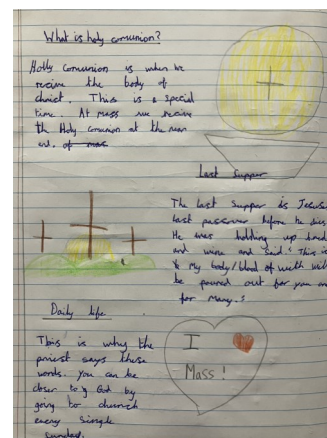 What is holy comunion?
Holly Comunion is when we
recive the body of
christ. This is a special
time. At mass we recive
the Holy comunion at the
end. of mas
Last Supper
The Last Supper is Jesus
last passover before he dies
He was holding up bread
and wine and said. "This is
my body/blood of witch will
be poured out for you and
for many."
Daily life
This is why the
priest says these
words. You can be
closer to God by
going to church
every single
sunday.
I
Mass!